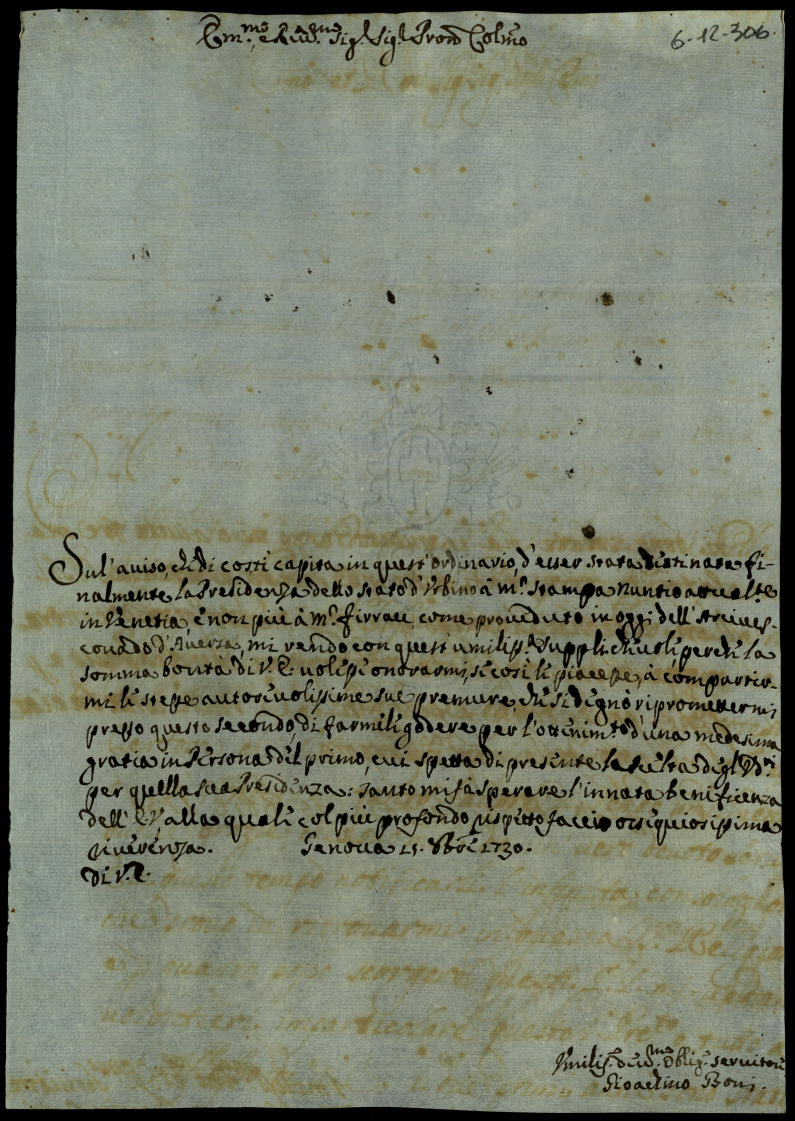 Em.mo e Rev.mo Sig.r Sig.r Pron Colmo
6-12-306.
Sul'auiso, che di costi capita in quest'ordinario, d'esser stata destinata fi-
nalmente la Presidenza dello stato d'Urbino à m.r Stampa Nuntio attuale
in Venetia, e non più à m.r Firrau, come proueduto in oggi dell'Arciues-
couado d'Auersa, mi rendo con questi umiliss.i supplicheuoli perche la
somma bontà di V. E. uolesse onorarmi, se così li piacesse, à compartir-
mi le stesse autoreuolissime sue premure, che si degnò ripromettermi
presso questo secondo, di farmili godere per l'ottenim.to d'una medesima
gratia in Persona del primo, cui spetta di presente la scelta degl'
per quella sua Presidenza: tanto mi fà sperare l'innata beneficenza
dell'E. V. alla quale col più profondo rispetto faccio ossequiosissima
riuerenza. Genoua 1730.
Di V. E.
Umilis.o Deu.mo Oblig.o Seruitore
Gioachino Boni.